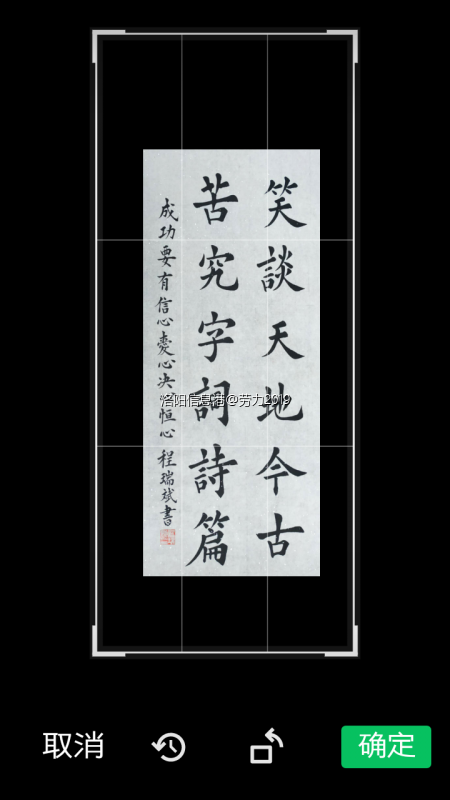 笑談天地今古
苦究字詞詩篇
成功要有信心愛心决心恒心 程瑞斌書
洛阳信息港@劳力2019
取消
确定